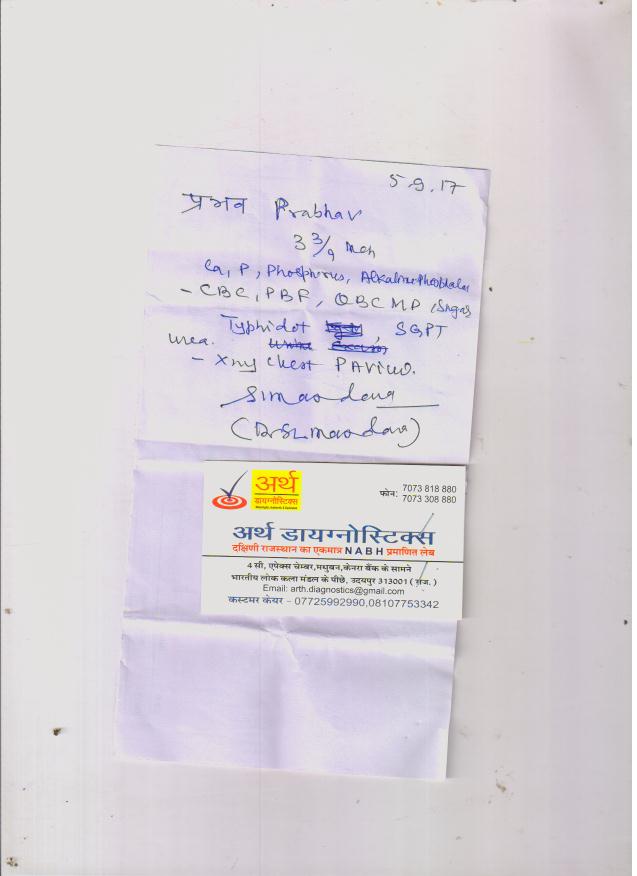 5.9.17
प्रभव Prabhav
3 3/9 Mch
Ca, P, Phosphorus, Alkaline Phosphatase
- CBC, PBF, QBC MP
Typhidot , SGPT
Urea.
- Xray Chest PA View.
(Dr SL maodawa)
अर्थ
डायग्नोस्टिक्स
फोन: 7073 818 880
7073 308 880
अर्थ डायग्नोस्टिक्स
दक्षिणी राजस्थान का एकमात्र NABH प्रमाणित लेब
4 सी, एपेक्स चेम्बर,मधुबन,केनरा बैंक के सामने
भारतीय लोक कला मंडल के पीछे, उदयपुर 313001 ( राज. )
Email: arth.diagnostics@gmail.com
कस्टमर केयर – 07725992990,08107753342